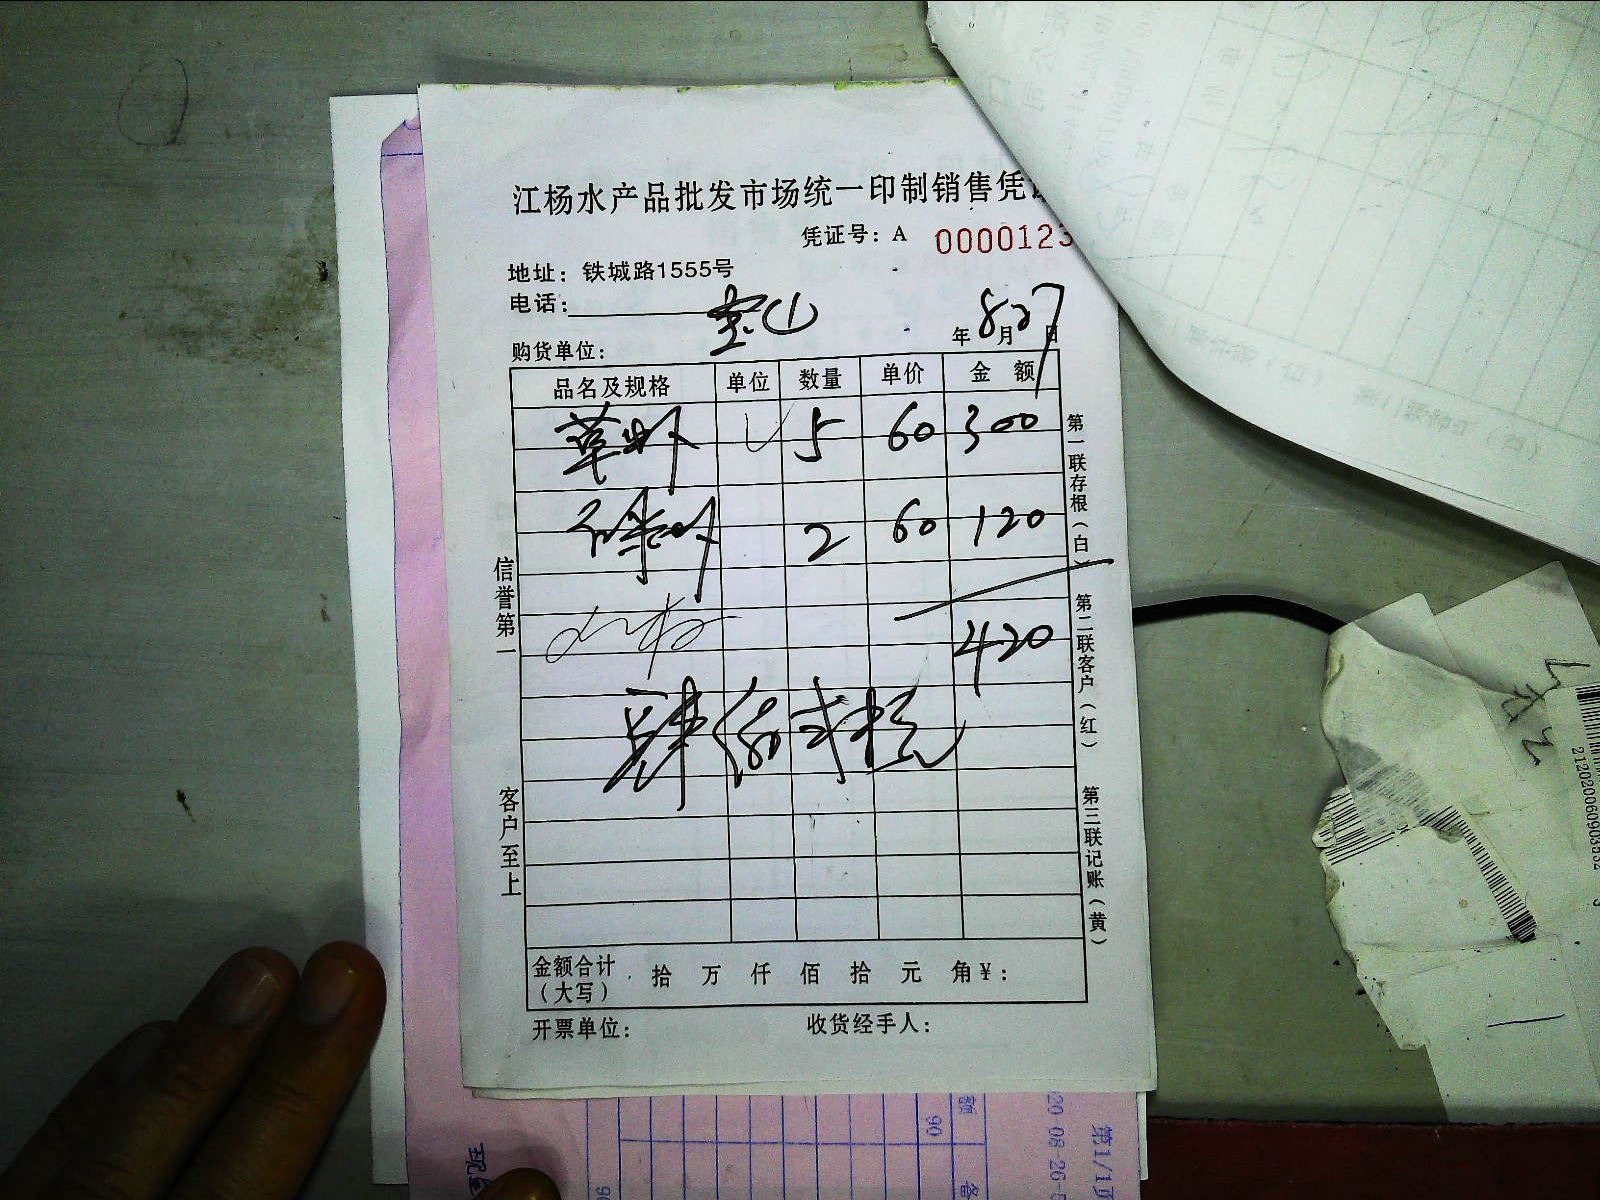 江杨水产品批发市场统一印制销售凭
凭证号：A 0000123
地址：铁城路1555号
电话：
宝山
年8月27日
购货单位：
品名及规格 单位 数量 单价 金 额
草虾 5 60 300
虾 2 60 120
420
肆佰贰拾元
金额合计（大写） 拾 万 仟 佰 拾 元 角¥：
开票单位： 收货经手人：
信誉第一
客户至上
第一联存根（白）
第二联客户（红）
第三联记账（黄）
212020060903532
第1/1页
20-08-26
90